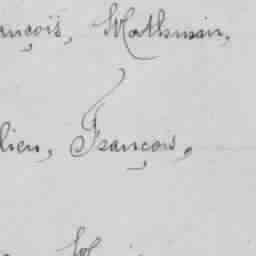 ançois, Mathurin,
lien, François,